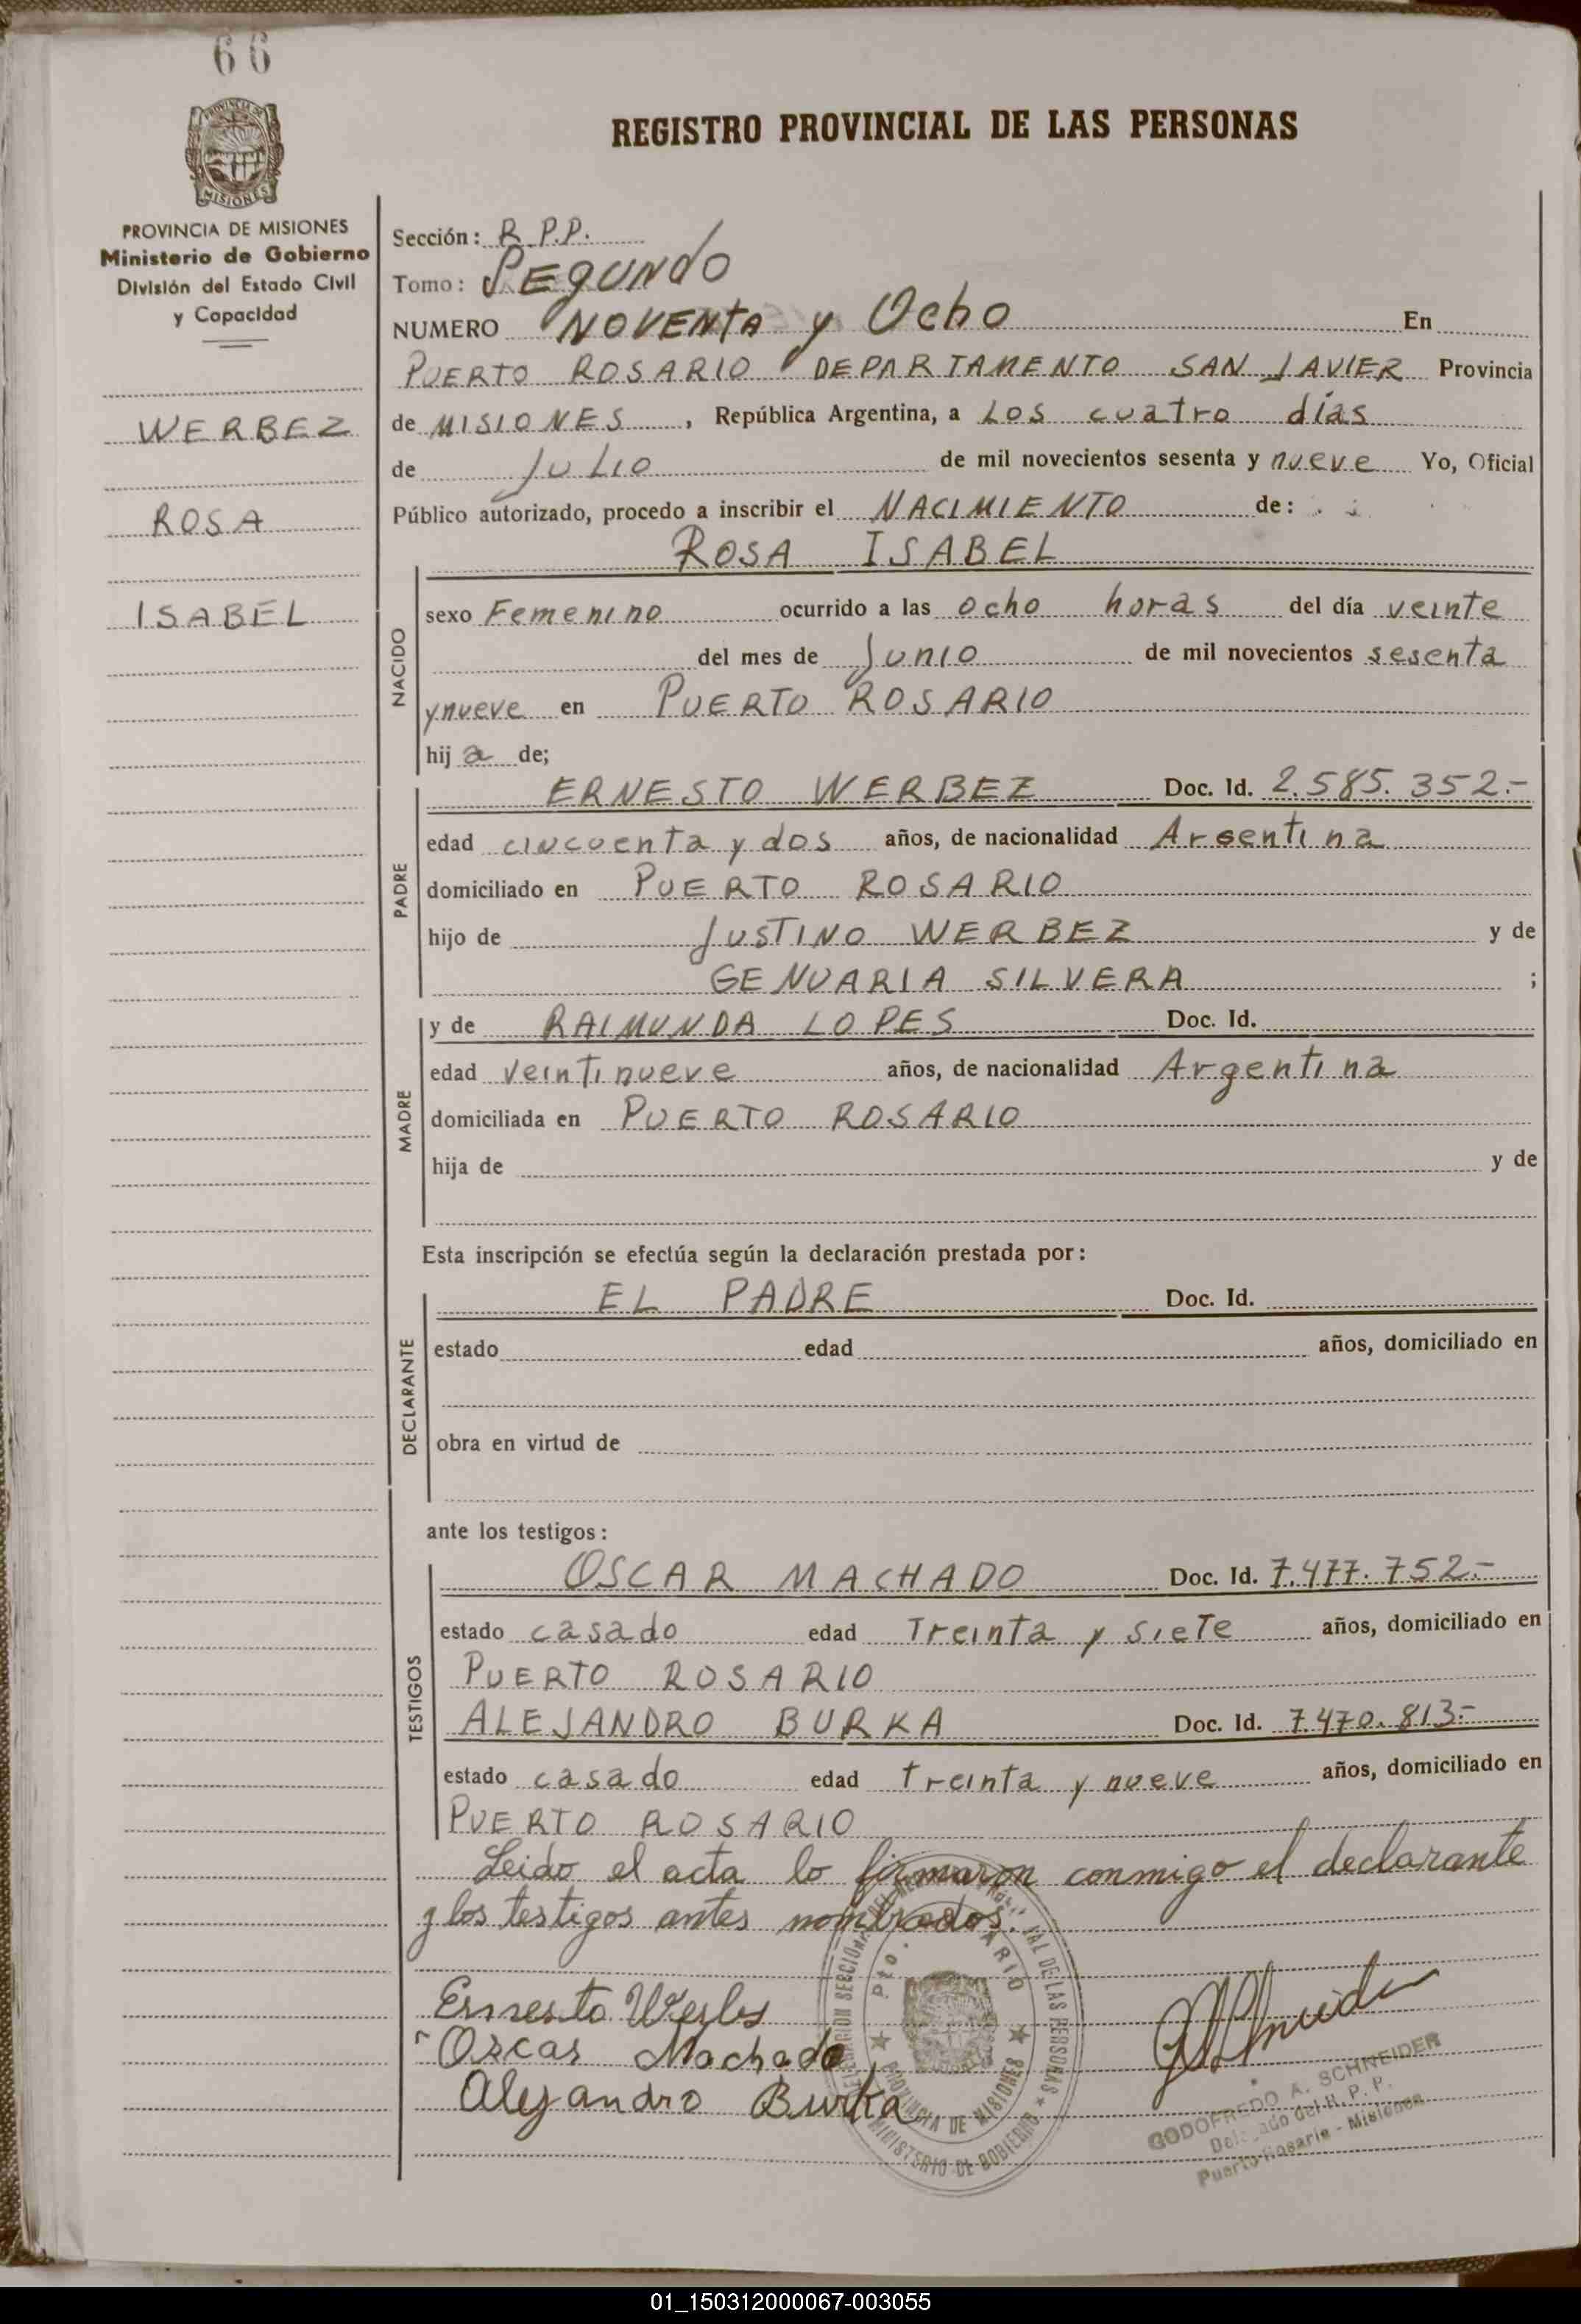 66
PROVINCIA DE
MISIONES
REGISTRO PROVINCIAL DE LAS PERSONAS
PROVINCIA DE MISIONES
Ministerio de Gobierno
División del Estado Civil
y Capacidad
WERBEZ
ROSA
ISABEL
Sección: R.P.P.
Tomo: SEGUNDO
NUMERO NOVENTA y Ocho En
PUERTO ROSARIO DEPARTAMENTO SAN JAVIER Provincia
de MISIONES, República Argentina, a Los cuatro días
de JULIO de mil novecientos sesenta y nueve Yo, Oficial
Público autorizado, procedo a inscribir el NACIMIENTO de:
ROSA ISABEL
NACIDO
sexo Femenino ocurrido a las ocho horas del día veinte
del mes de Junio de mil novecientos sesenta
y nueve en PUERTO ROSARIO
hij a de;
PADRE
ERNESTO WERBEZ Doc. Id. 2.585.352.-
edad cincuenta y dos años, de nacionalidad Argentina
domiciliado en PUERTO ROSARIO
hijo de JUSTINO WERBEZ y de
GENUARIA SILVERA ;
MADRE
y de RAIMUNDA LOPES Doc. Id.
edad veintinueve años, de nacionalidad Argentina
domiciliada en PUERTO ROSARIO
hija de y de
Esta inscripción se efectúa según la declaración prestada por:
DECLARANTE
EL PADRE Doc. Id.
estado edad años, domiciliado en
obra en virtud de
ante los testigos:
TESTIGOS
OSCAR MACHADO Doc. Id. 7.477.752.-
estado casado edad Treinta y siete años, domiciliado en
PUERTO ROSARIO
ALEJANDRO BURKA Doc. Id. 7.470.813.-
estado casado edad treinta y nueve años, domiciliado en
PUERTO ROSARIO
Leido el acta lo firmaron conmigo el declarante
y los testigos antes nombrados.
Ernesto Werbes
Oscar Machado
Alejandro Burka
Pto. ROSARIO
PROVINCIA DE MISIONES
MINISTERIO DE GOBIERNO
DE LAS PERSONAS
GODOFREDO A. SCHNEIDER
Delegado del R. P. P.
Puerto Rosario - Misiones
01_150312000067-003055